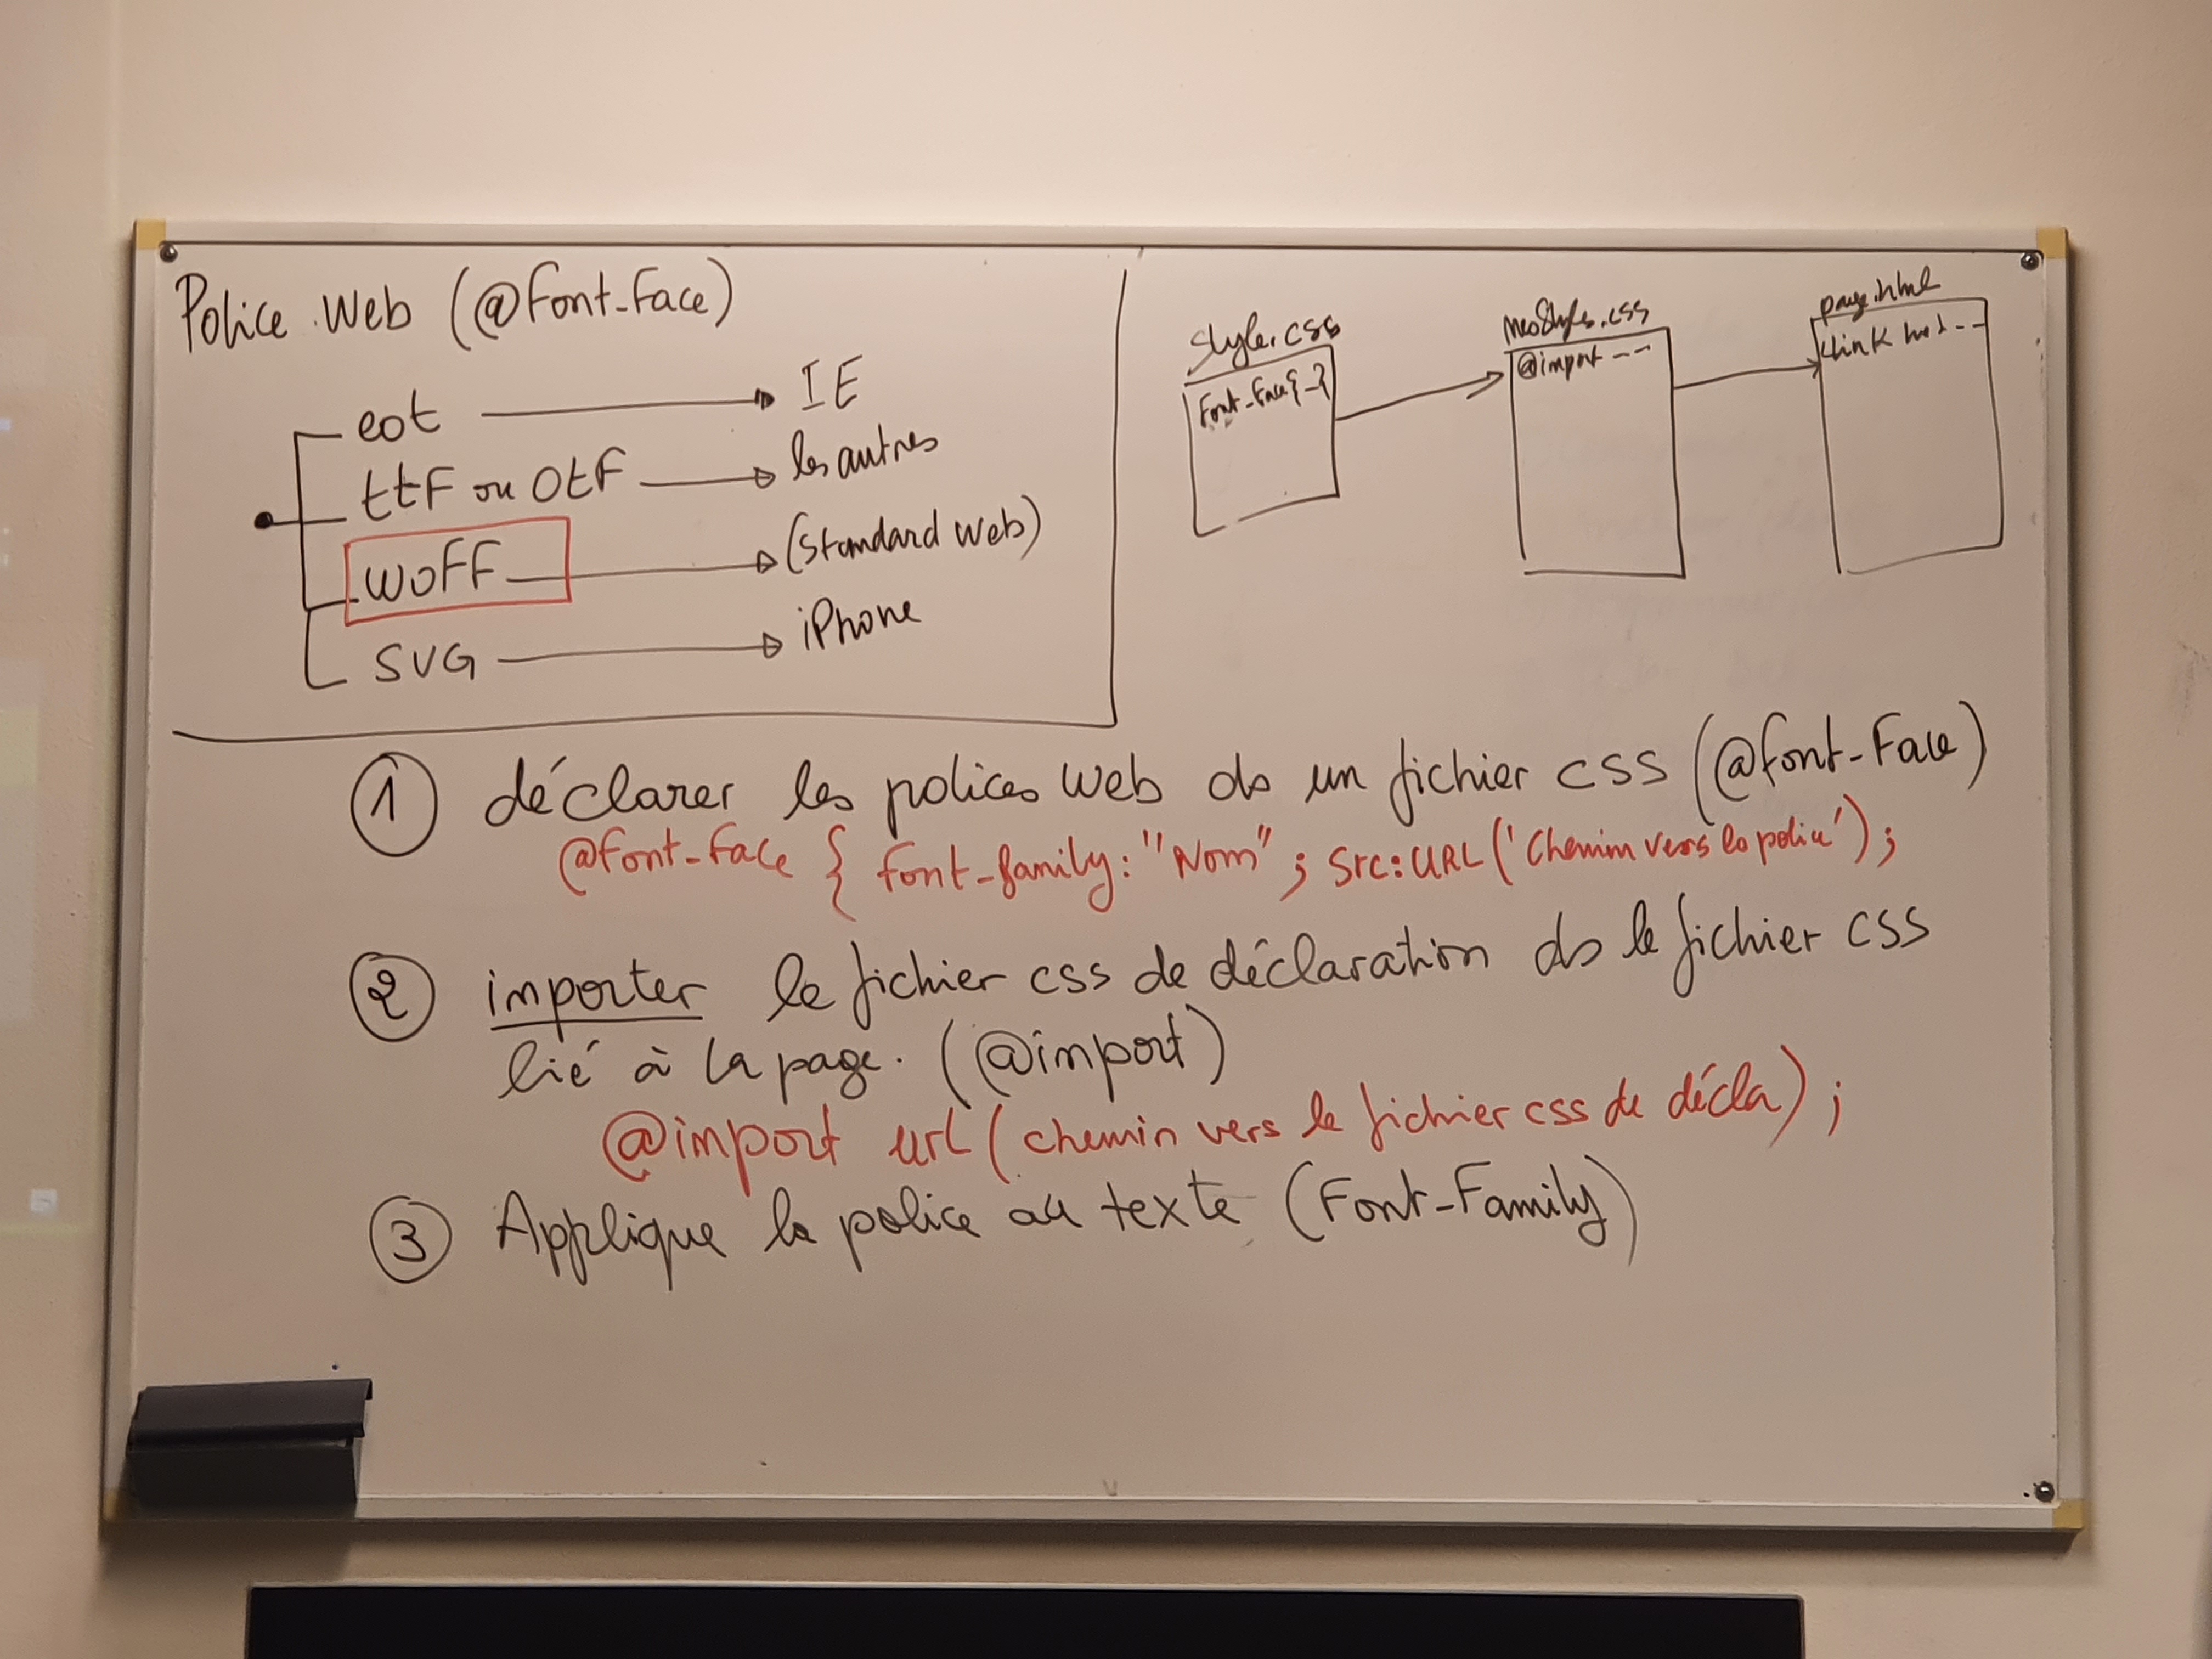 Police Web (@Font-Face)
eot IE
ttF ou OtF les autres
woFF (Standard Web)
SVG iPhone
style.css
Font-Face{-}
@import --
page.html
<link
① déclarer les polices web ds un fichier css (@font-Face)
@font-face { font-family: "Nom" ; Src: URL ('Chemin vers la police') ;
② importer le fichier css de déclaration ds le fichier css
lié à la page. (@import)
@import url (chemin vers le fichier css de décla) ;
③ Applique la police au texte (Font-Family)